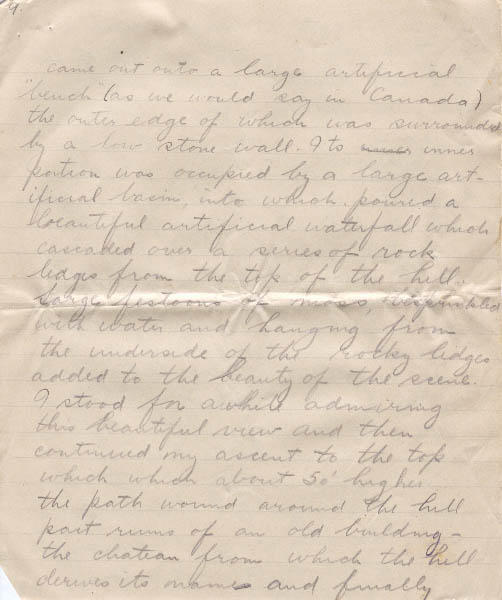 9.
came out onto a large artificial
"bench" (as we would say in Canada)
the outer edge of which was surrounded
by a low stone wall. Its inner
portion was occupied by a large art-
ificial basin, into which poured a
beautiful artificial waterfall which
cascaded over a series of rock
ledges from the top of the hill.
Large festoons of moss, besprinkled
with water and hanging from
the underside of the rocky ledges
added to the beauty of the scene.
I stood for awhile admiring
this beautiful view and then
continued my ascent to the top
which which about 50' higher
the path wound around the hill
past ruins of an old building -
the chateau from which the hill
derives its name and finally